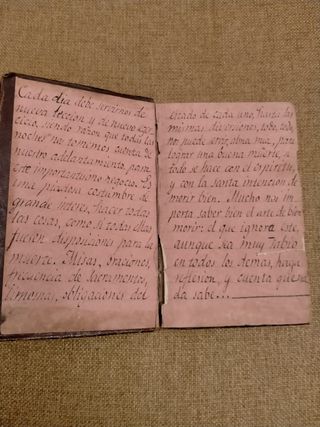 Cada dia debe servirnos de
nueva leccion y de nuevo exer-
cicio, siendo razon que todas las
noches nos tomemos cuenta de
nuestro adelantamiento, para
este importantisimo negocio. Es
una piadosa costumbre de
grande interes, hacer todas
las cosas, como si todas ellas
fuesen disposiciones para la
muerte. Misas, oraciones,
frecuencia de Sacramentos,
limosnas, obligaciones del
estado de cada uno, hasta las
mismas diversiones, todo, todo
nos puede servir, alma mia, para
lograr una buena muerte, si
todo se hace con el espiritu,
y con la santa intencion de
morir bien. Mucho nos im-
porta saber bien el arte de bien
morir: el que ignora este,
aunque sea muy sabio
en todos los demas, haga
reflexion, y cuenta que na-
da sabe...